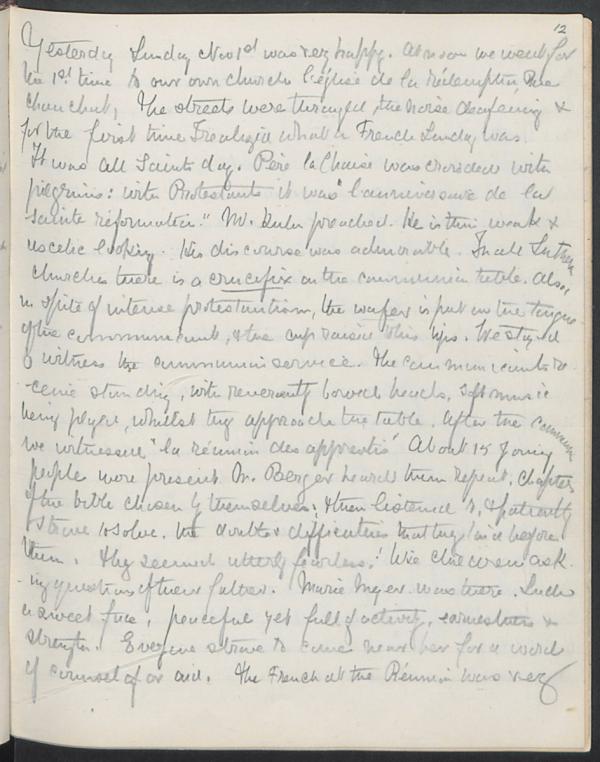 12
Yesterday Sunday Nov 1st was very happy. At noon we went for
the 1st time to our own church L'église de la rédemption, Rue
Chauchat, The streets were thronged, the noise deafening &
for the first time I realized what a French Sunday was.
It was All Saints day. Père la Chaise was crowded with
pilgrims: with Protestants it was "l'anniversaire de la
sainte réformation." M. Kuhn preached. He is thin weak &
ascetic looking. His discourse was admirable. In all Lutheran
churches there is a crucifix on the communion table. Also,
in spite of intense protestantism, the wafer is put on the tongue
of the communicant, & the cup raised to his lips. We stayed
to witness the communion service. The communicants re-
ceive standing, with reverently bowed heads, soft music
being played, whilst they approach the table. After the
we witnessed "la réunion des apprentis" About 15 young
people were present. M. Berger heard them repeat, chapters
of the bible chosen by themselves; & then listened to, & patiently
strove to solve, the doubts & difficulties that they laid before
them. They seemed utterly fearless, like children ask-
ing questions of their father. Marie Meyer was there. Such
a sweet face, peaceful yet full of activity, earnestness &
strength. Everyone strove to come near her for a word
of counsel or aid. The French at the Réunion was very